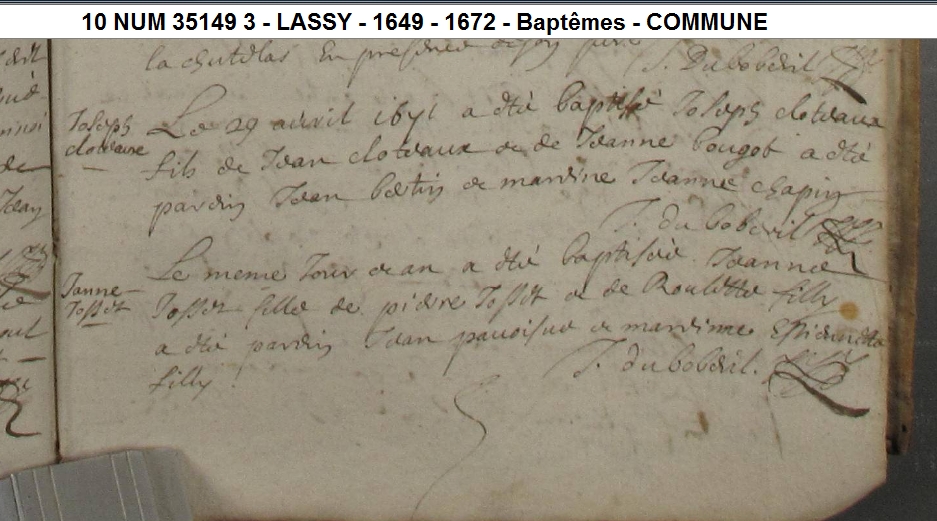 10 NUM 35149 3 - LASSY - 1649 - 1672 - Baptêmes - COMMUNE
la En presence de son pere
J. Duboberil
Joseph
cloteaux
Le 29 avril 1671 a été baptisé Joseph cloteaux
fils de Jean cloteaux & de Jeanne bougot a été
parein Jean bertin & mareine Jeanne chapin
J. du boberil
Janne
Josset
Le meme Jour & an a été baptiseé Jeanne
Josset fille de piere Josset & de Roulette filly
a été parein Jean & mareinne Estiennette
filly
J. du boberil.